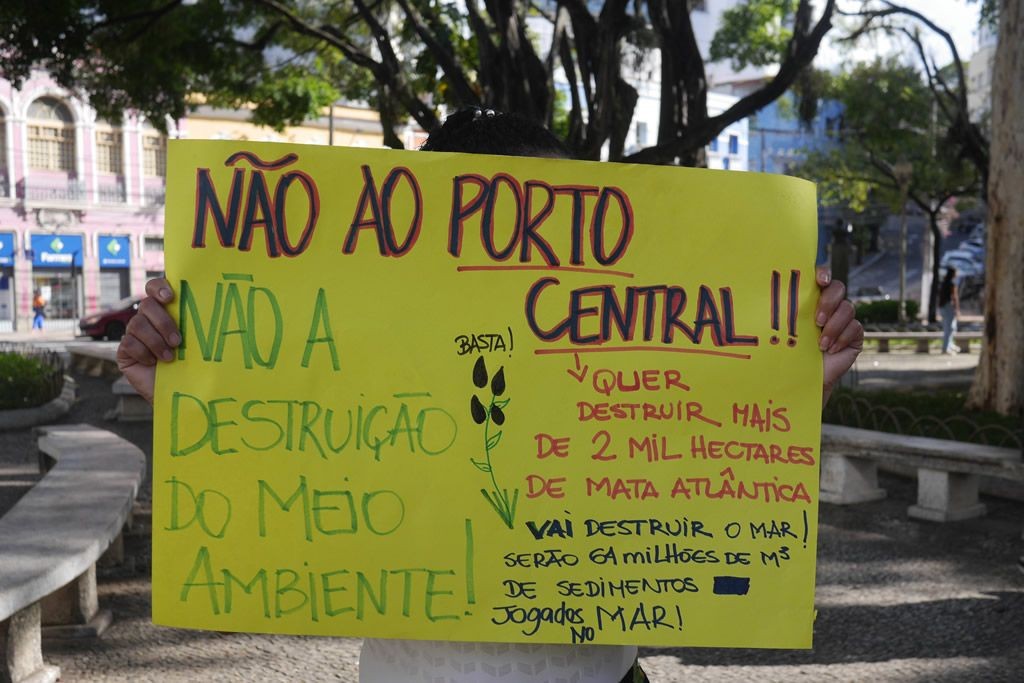 NÃO AO PORTO
CENTRAL!!
NÃO A
DESTRUIÇÃO
DO MEIO
AMBIENTE!
BASTA!
QUER
DESTRUIR MAIS
DE 2 MIL HECTARES
DE MATA ATLÂNTICA
VAI DESTRUIR O MAR!
SERÃO 64 MILHÕES DE M³
DE SEDIMENTOS
Jogados NO MAR!